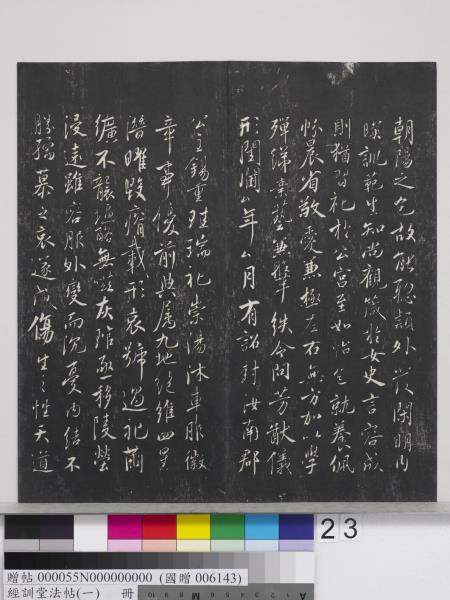 朝陽之色故能聰穎外發閑明內
暎訓範生知尚觀箴於女史言容成
則猶習礼於公宮至如怡色就養佩
帨晨省敬愛兼極左右無方加以學
殫綈素藝兼鞶紩令問芳猷儀
形閨閫厶年厶月有詔封汝南郡
公主錫重珪瑞礼崇湯沐車服徽
章事優前典屬九地絕維四星
潛曜毀瘠載形哀號過礼繭
纊不襲塩酪無嗞灰琯亟移陵塋
浸遠雖容服外變而沉憂內結不
勝孺慕之哀遂成傷生之性天道
23
贈帖 000055N000000000 (國贈 006143)
經訓堂法帖(一) 冊